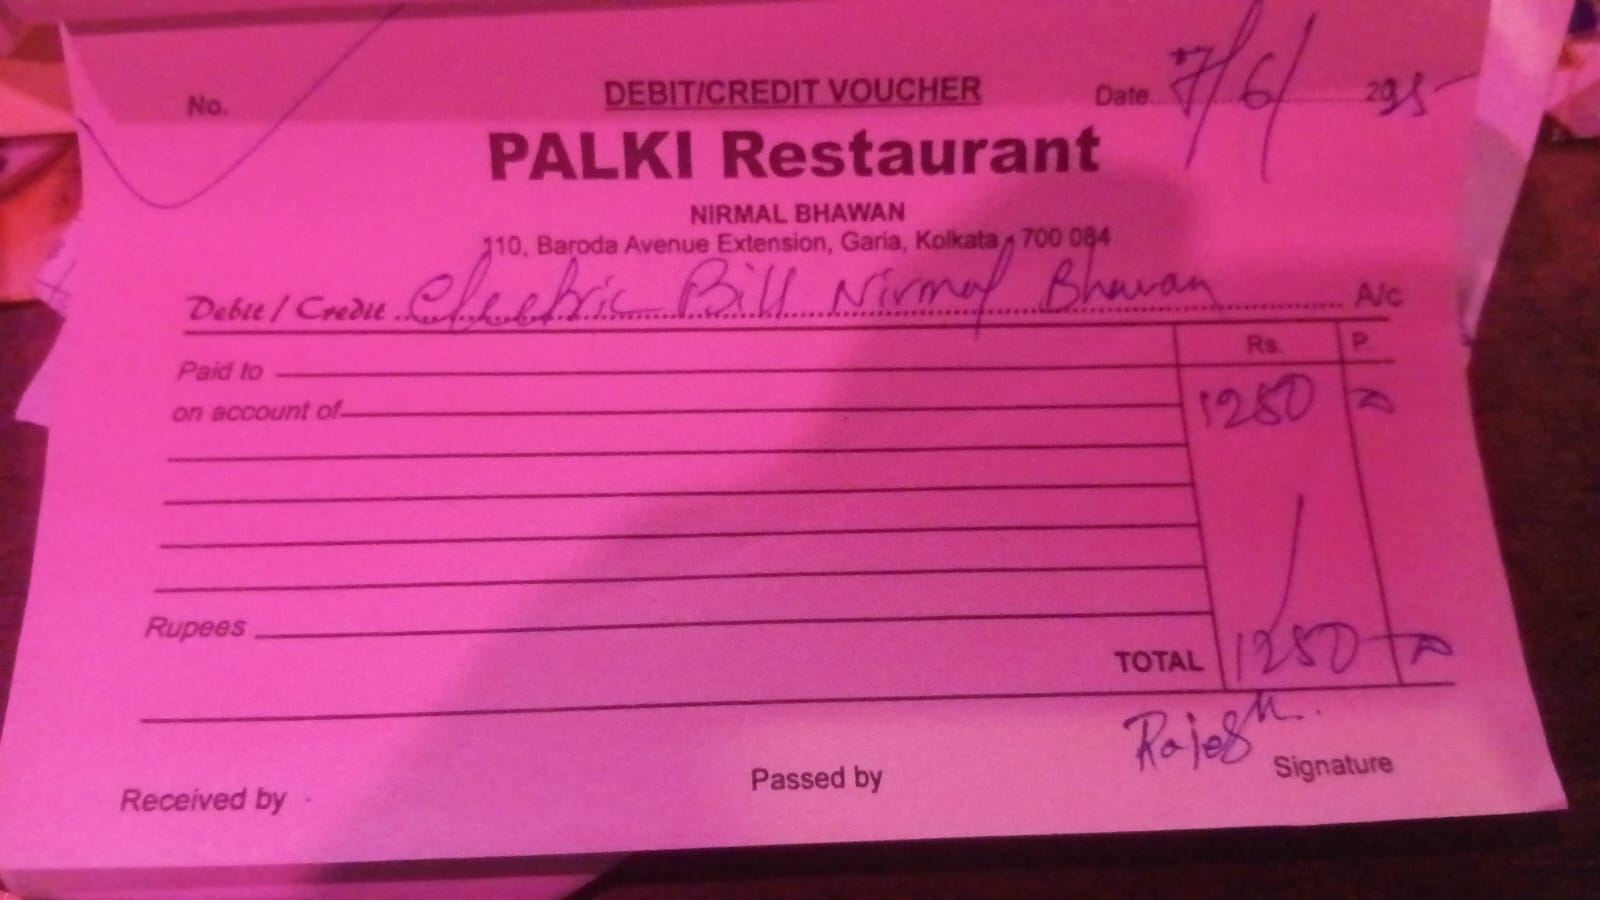 No.
DEBIT/CREDIT VOUCHER
Date 7/6/ 2025
PALKI Restaurant
NIRMAL BHAWAN
110, Baroda Avenue Extension, Garia, Kolkata - 700 084
Debit / Credit Electric Bill Nirmal Bhawan A/c
Rs. P.
Paid to
on account of 1250
Rupees
TOTAL 1250
Rajesh.
Received by Passed by Signature